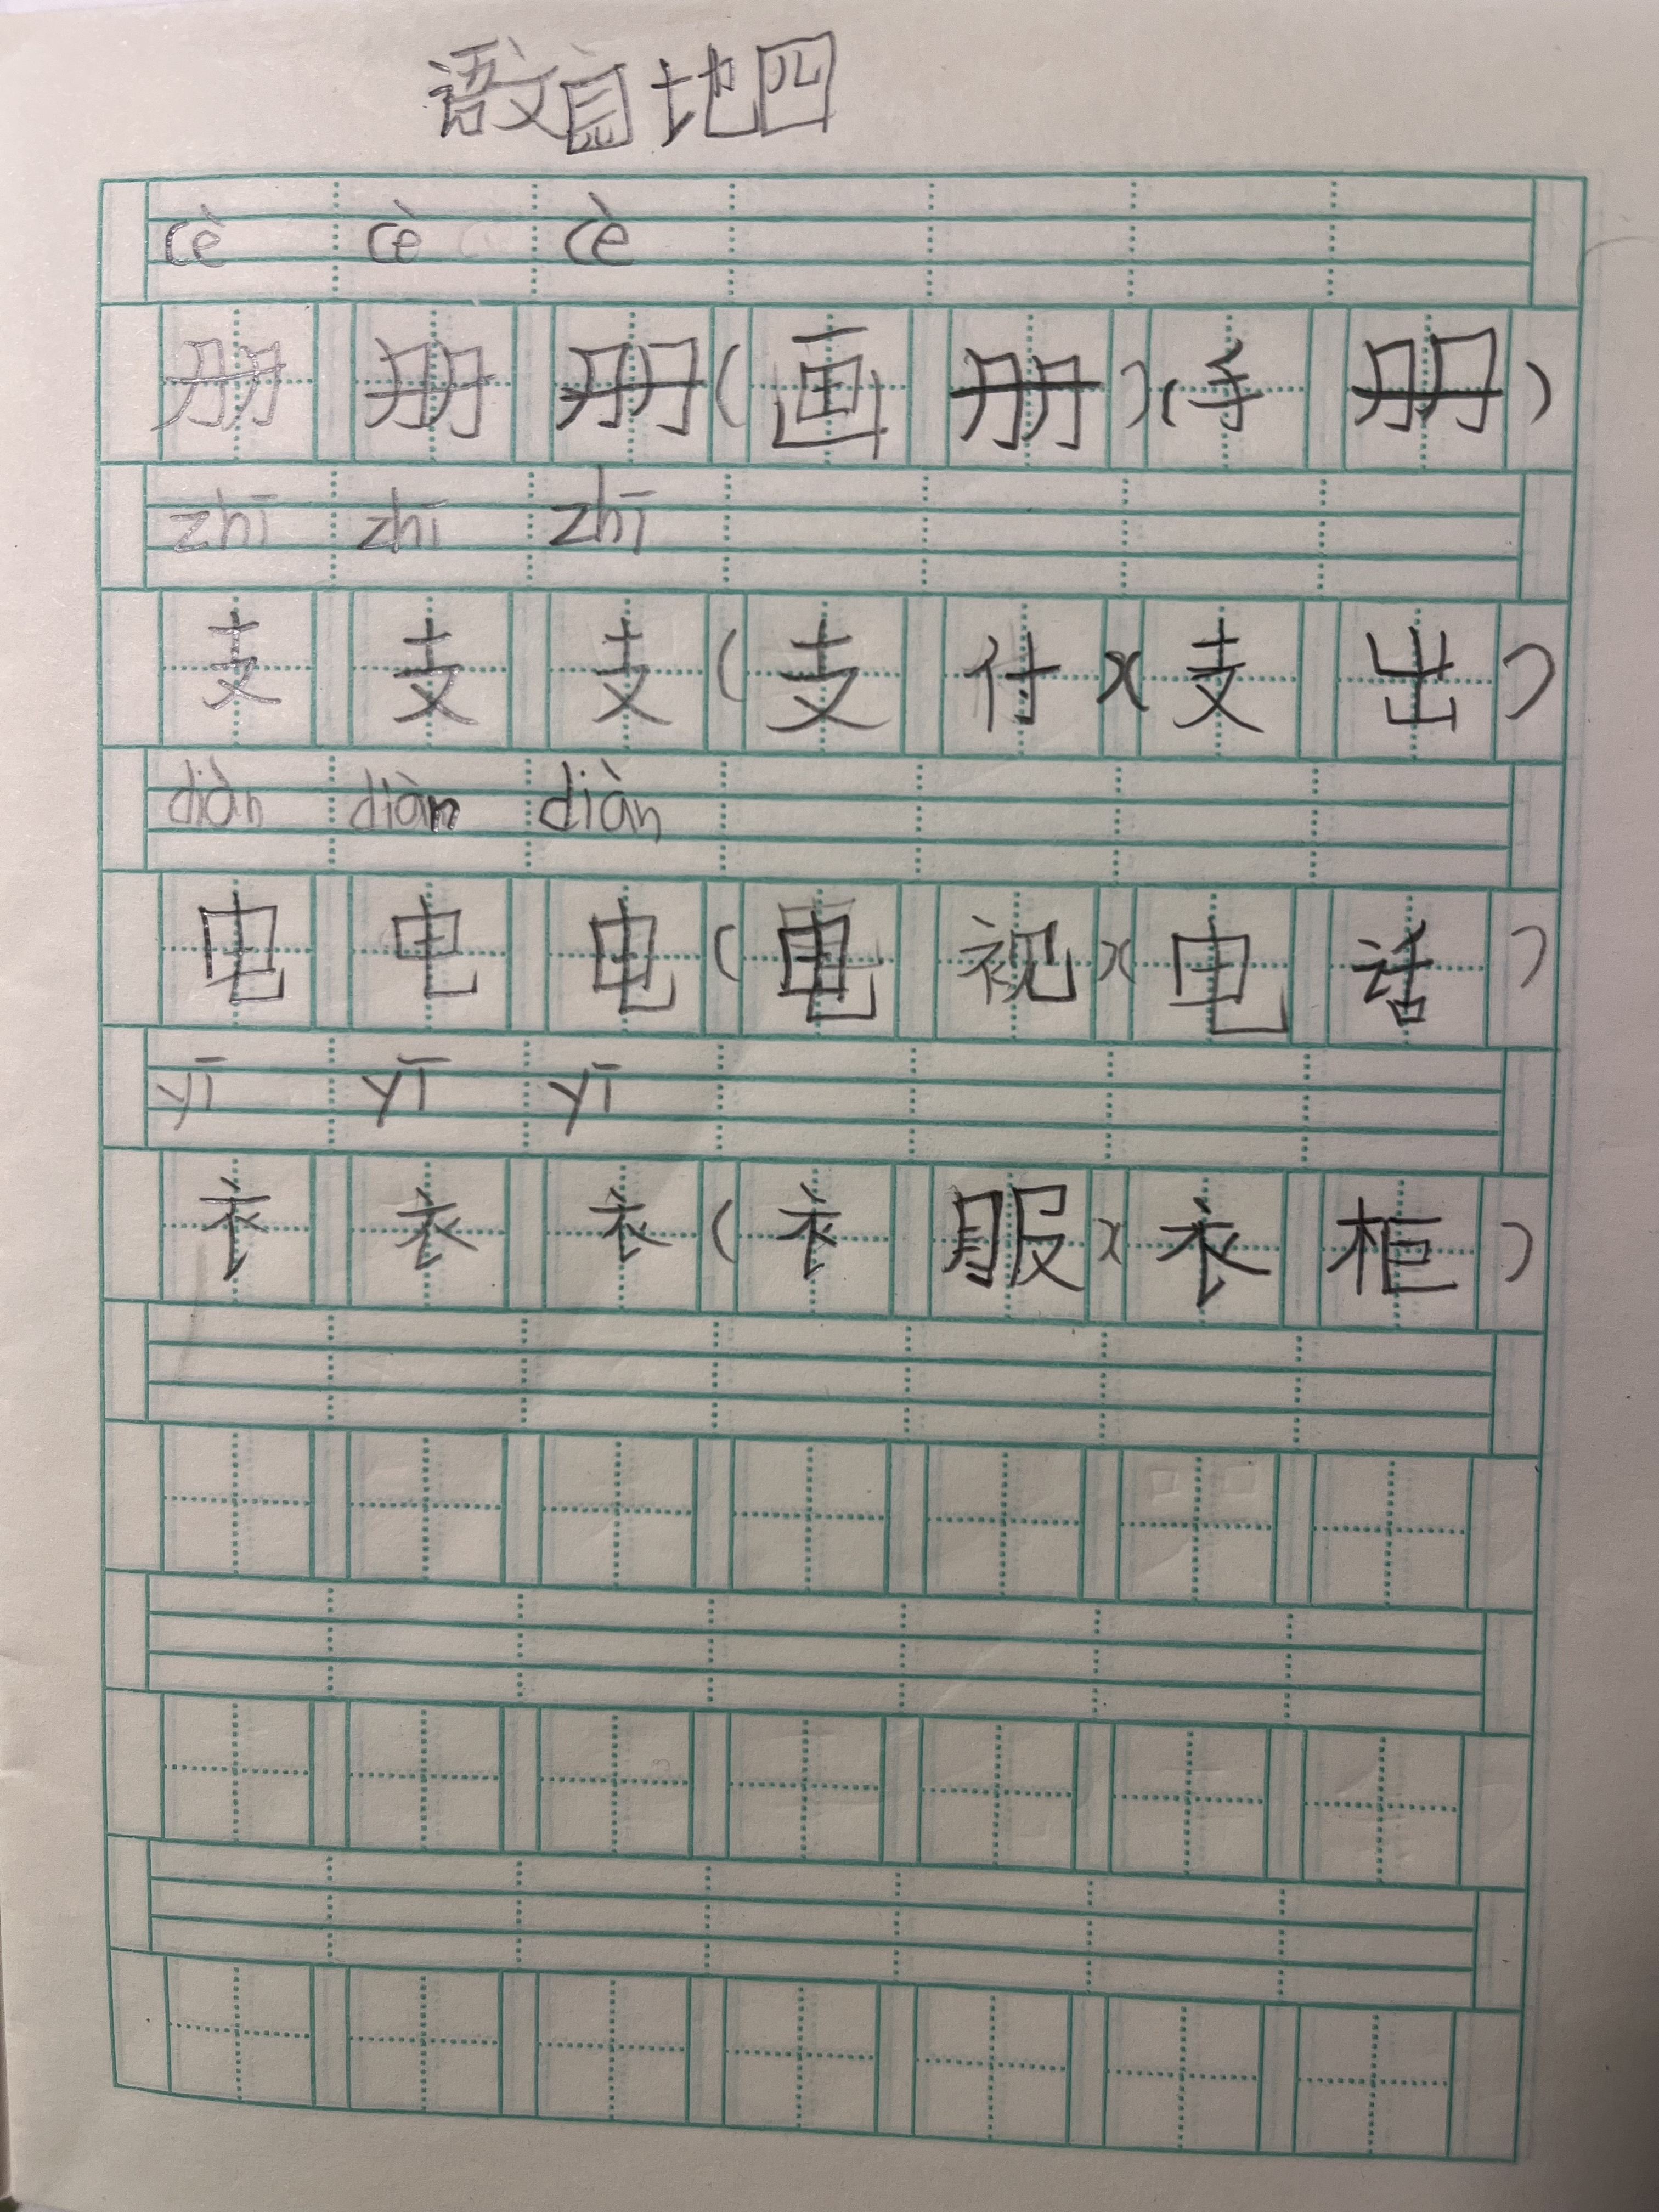 语文园地四
cè cè cè
册 册 册 ( 画 册 ) ( 手 册 )
zhī zhī zhī
支 支 支 ( 支 付 ) ( 支 出 )
diàn diàn diàn
电 电 电 ( 电 视 ) ( 电 话 )
yī yī yī
衣 衣 衣 ( 衣 服 ) ( 衣 柜 )